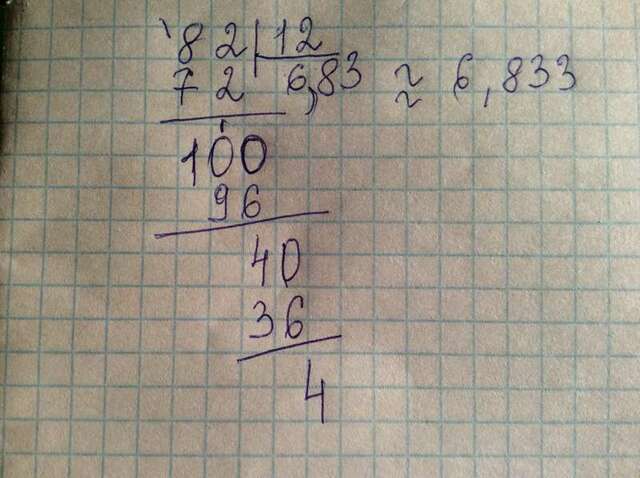 82 12
72 6,83 ≈ 6,833
100
96
40
36
4